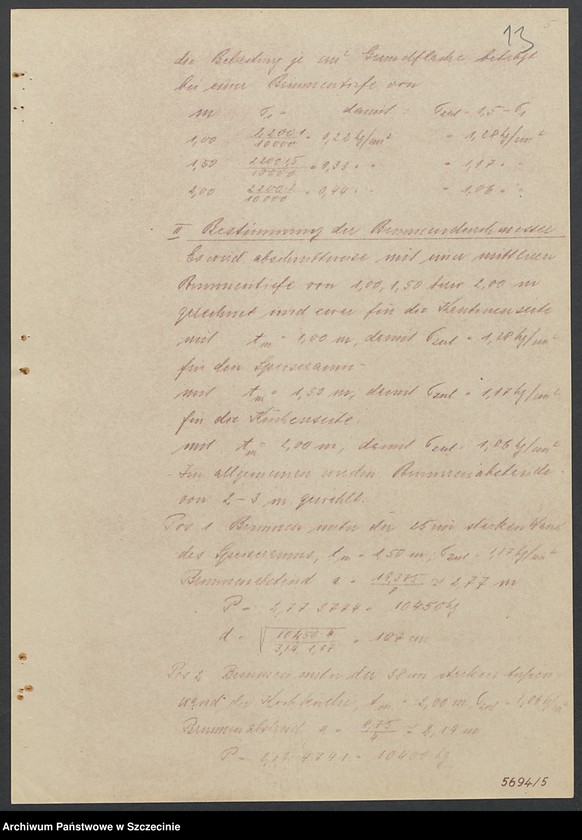 13
die Belastung je cm² Grundfläche beträgt
bei einer Brunnentiefe von
m σ₁ = damit σzul = 1,5 - σ₁
1,00 2200·1/10000 = 0,22 kg/cm² = 1,28 kg/cm²
1,50 2200·1,5/10000 = 0,33 " " = 1,17 " "
2,00 2200·2/10000 = 0,44 " " = 1,06 " "
II Bestimmung der Brunnendurchmesser
Es wird abschnittweise mit einer mittleren
Brunnentiefe von 1,00, 1,50 bzw 2,00 m
gerechnet und zwar für die Kantinenseite
mit tm = 1,00 m, damit σzul = 1,28 kg/cm²
für den Speiseraum
mit tm = 1,50 m, damit σzul = 1,17 kg/cm²
für die Küchenseite
mit tm = 2,00 m, damit σzul = 1,06 kg/cm²
Im allgemeinen werden Brunnenabstände
von 2 - 3 m gewählt.
Pos 1 Brunnen unter der 25 cm starken Wand
des Speiseraumes, tm = 1,50 m, σzul = 1,17 kg/cm²
Brunnenabstand a = 19,385/7 = 2,77 m
P = 2,77 · 3774 = 10450 kg
d = √ 10450·4/3,14·1,17 = 107 cm
Pos 2 Brunnen unter der 38 cm starken
wand der Kochküche, tm = 2,00 m, σzul = 1,06 kg/cm²
Brunnenabstand a = = 2,19 m
P = 2,19 · 4741 = 10400 kg
5694/5
Archiwum Państwowe w Szczecinie